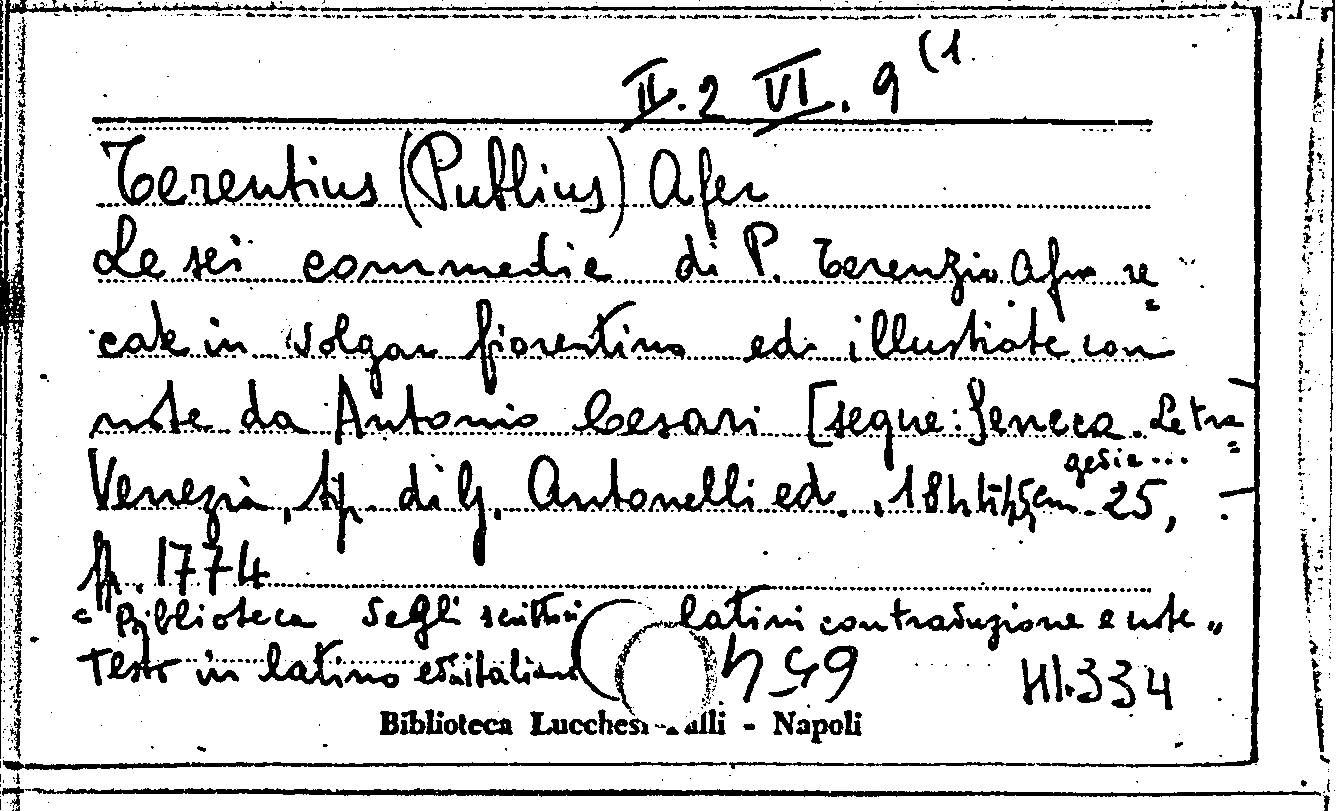 II. 2 VI. 9 (1
Terentius (Publius) Afer
Le sei commedie di P. Terenzio Afro re=
cate in volgar fiorentino ed illustrate con
note da Antonio Cesari [segue: Seneca. Le tra=
gedie...
Venezia, tip. di G. Antonelli ed. cm. 25,
pp. 1774
"Biblioteca degli scrittori latini con traduzione e note"
Testo in latino ed in italiano
HI.334
Biblioteca Lucchesi - Napoli